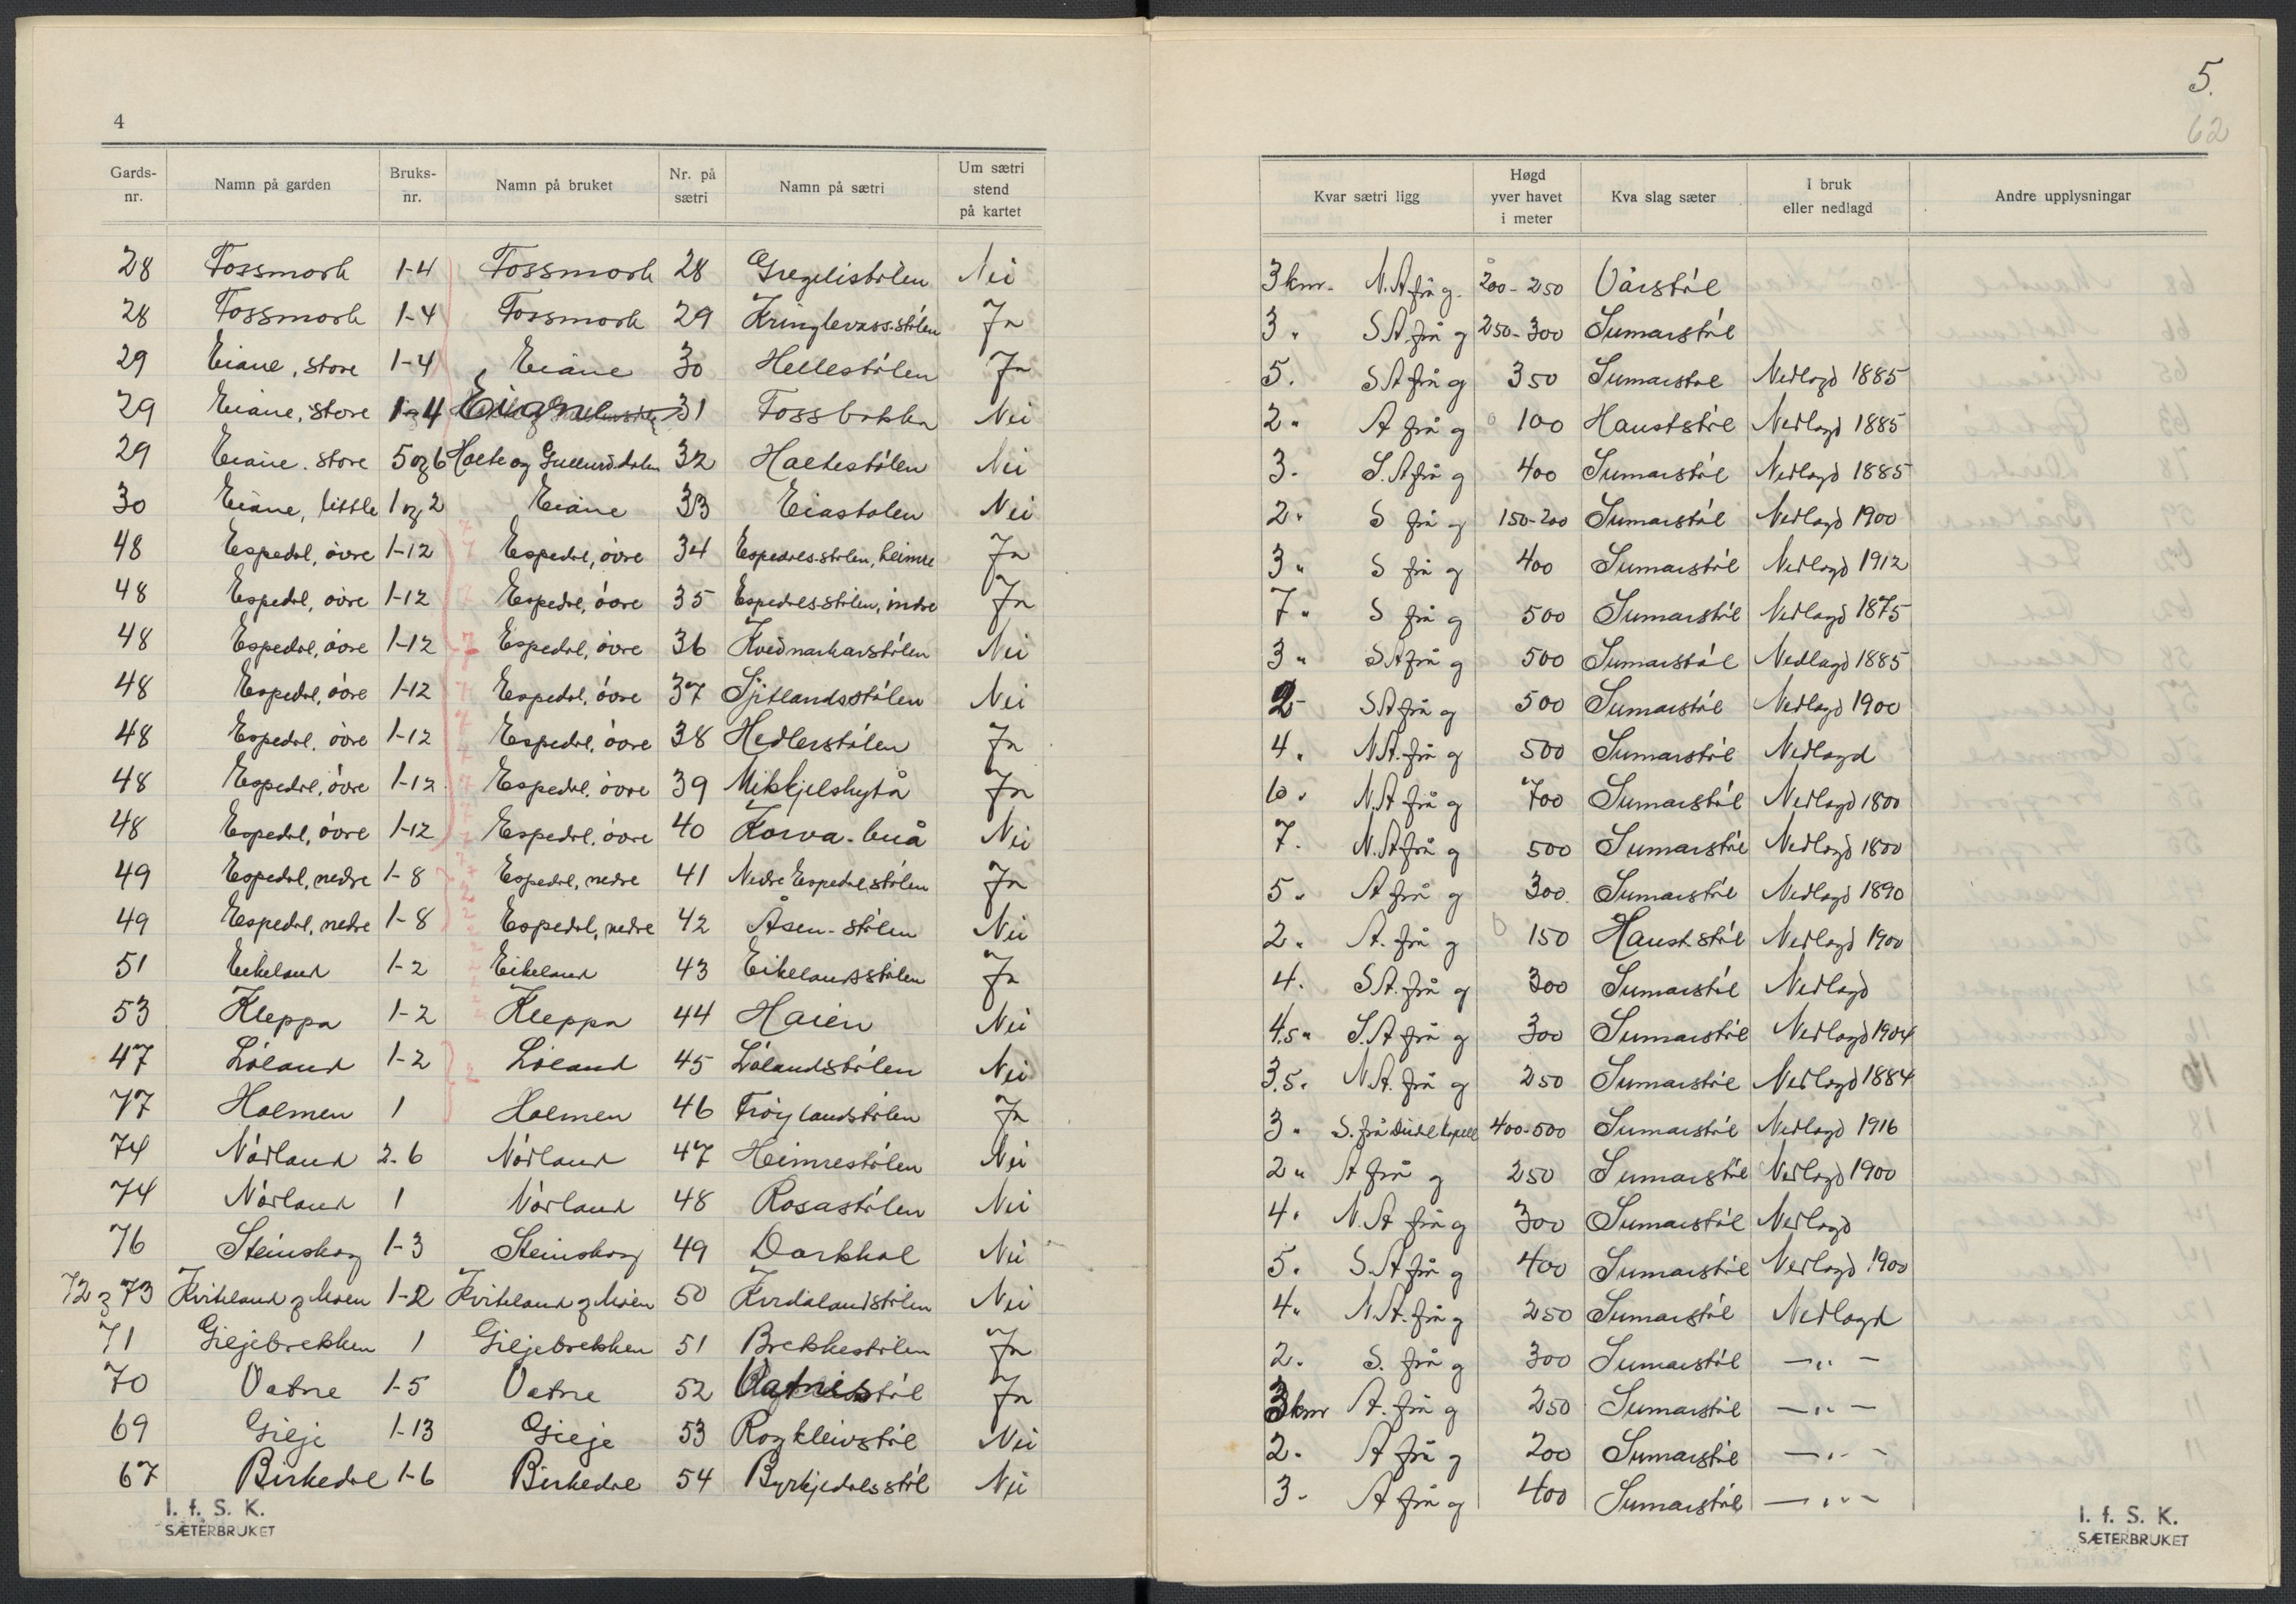 4
Gards-nr. Namn på garden Bruks-nr. Namn på bruket Nr. på sætri Namn på sætri Um sætri stend på kartet
28 Fossmork 1-4 Fossmork 28 Gregelistölen Nei
28 Fossmork 1-4 Fossmork 29 Kringlevass-stölen Ja
29 Eiane, store 1-4 Eiane 30 Hellestölen Ja
29 Eiane, store 1-4 Eiane 31 Fossbakka Nei
29 Eiane, store 5 og 6 Holte og 32 Holtestölen Nei
30 Eiane, litle 1 og 2 Eiane 33 Eiastölen Nei
48 Espedal, övre 1-12 Espedal, övre 34 Espedalsstölen, heimre Ja
48 Espedal, övre 1-12 Espedal, övre 35 Espedalsstölen, indre Ja
48 Espedal, övre 1-12 Espedal, övre 36 Kvednarkarstölen Nei
48 Espedal, övre 1-12 Espedal, övre 37 Sjitlandsstölen Nei
48 Espedal, övre 1-12 Espedal, övre 38 Hedlerstölen Ja
48 Espedal, övre 1-12 Espedal, övre 39 Mikkjelshytå Ja
48 Espedal, övre 1-12 Espedal, övre 40 Korva-buå Nei
49 Espedal, nedre 1-8 Espedal, nedre 41 Nedre Espedalstölen Ja
49 Espedal, nedre 1-8 Espedal, nedre 42 Åsen-stölen Nei
51 Eikeland 1-2 Eikeland 43 Eikelandsstölen Ja
53 Kleppa 1-2 Kleppa 44 Haien Nei
47 Löland 1-2 Löland 45 Lölandstölen Nei
77 Holmen 1 Holmen 46 Fröylandstölen Ja
74 Nörland 2-6 Nörland 47 Heimrestölen Nei
74 Nörland 1 Nörland 48 Rosastölen Nei
76 Steinskog 1-3 Steinskog 49 Darkhol Nei
72 og 73 Kviteland og Moen 1-2 Kviteland og Moen 50 Kvidalandstölen Nei
71 Giljebrekken 1 Giljebrekken 51 Brekkestölen Ja
70 Vatne 1-5 Vatne 52 Vatnestöl Ja
69 Gilje 1-13 Gilje 53 Rogkleivstöl Nei
67 Birkedal 1-6 Birkedal 54 Byrkjedalsstöl Nei
I. f. S. K.
SÆTERBRUKET
5.
62
Kvar sætri ligg Høgd yver havet i meter Kva slag sæter I bruk eller nedlagd Andre upplysningar
3 km. N.A frå g. 200-250 Vårstöl
3 " S A frå g 250-300 Sumarstöl
5. S A frå g 350 Sumarstöl Nedlagd 1885
2 " A frå g 100 Hauststöl Nedlagd 1885
3. S.A frå g 400 Sumarstöl Nedlagd 1885
2 " S frå g 150-200 Sumarstöl Nedlagd 1900
3 " S frå g 400 Sumarstöl Nedlagd 1912
7 " S frå g 500 Sumarstöl Nedlagd 1875
3 " S A frå g 500 Sumarstöl Nedlagd 1885
2 - S A frå g 500 Sumarstöl Nedlagd 1900
4. N A. frå g 500 Sumarstöl Nedlagd
10. N.A frå g 700 Sumarstöl Nedlagd 1800
7. N.A frå g 500 Sumarstöl Nedlagd 1800
5. A frå g 300 Sumarstöl Nedlagd 1890
2. A. frå g 150 Hauststöl Nedlagd 1900
4. S A. frå g 300 Sumarstöl Nedlagd
4.5 " S.A frå g 300 Sumarstöl Nedlagd 1904
3.5. N A. frå g 250 Sumarstöl Nedlagd 1884
3 " S. frå Dirdal kapell 400-500 Sumarstöl Nedlagd 1916
2 " A frå g 250 Sumarstöl Nedlagd 1900
4. N.A frå g 300 Sumarstöl Nedlagd
5. S.A frå g 400 Sumarstöl Nedlagd 1900
4 " N A. frå g 250 Sumarstöl Nedlagd
2. S. frå g 300 Sumarstöl —"—
3 km A. frå g 250 Sumarstöl —"—
2. A frå g 200 Sumarstöl —"—
3 - A frå g 400 Sumarstöl —"—
I. f. S. K.
SÆTERBRUKET